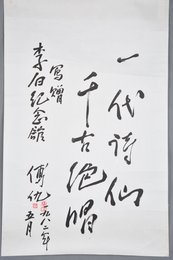 一代诗仙
千古绝唱
写赠
李白纪念馆
傅仇
一九八二年
五月